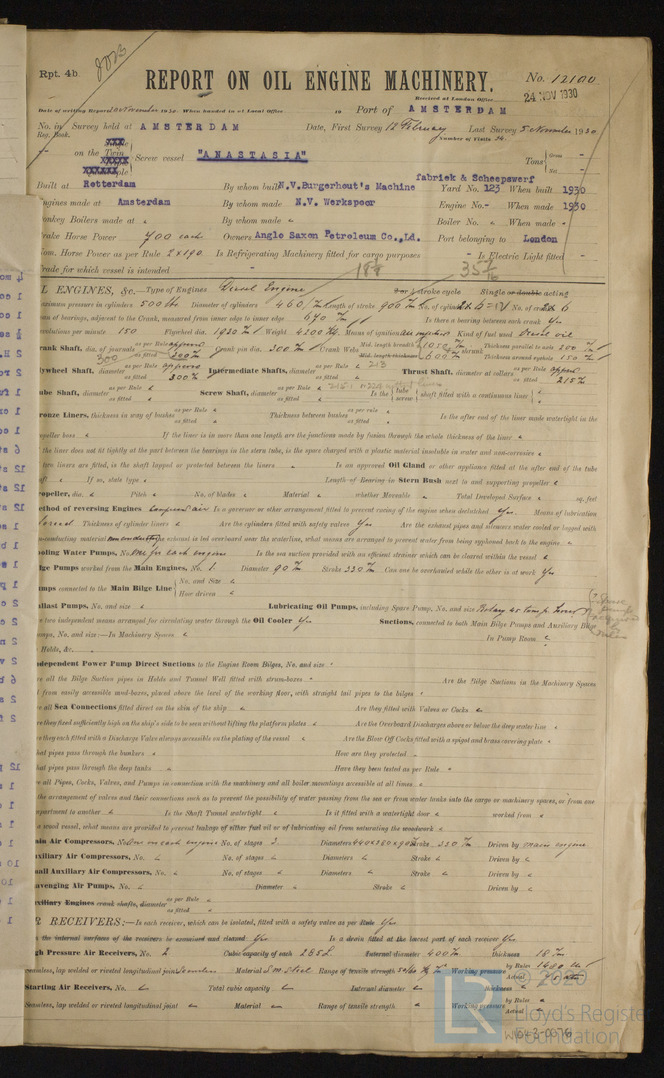 Rpt. 4b.
REPORT ON OIL ENGINE MACHINERY.
No. 12100
Received at London Office
24 NOV 1930
Date of writing Report November 1930. When handed in at Local Office 19 Port of AMSTERDAM
No. in Survey held at AMSTERDAM Date, First Survey 18 February Last Survey 5 November 1930
Reg. Book. Number of Visits
on the Twin Screw vessel "ANASTASIA" Tons Gross Net
Built at Rotterdam By whom built N.V. Burgerhout's Machine fabriek & Scheepswerf Yard No. 123 When built 1930
Engines made at Amsterdam By whom made N.V. Werkspoor Engine No. - When made 1930
Donkey Boilers made at By whom made Boiler No. When made -
Brake Horse Power 700 each Owners Anglo Saxon Petroleum Co., Ld. Port belonging to London
Nom. Horse Power as per Rule 2x190 Is Refrigerating Machinery fitted for cargo purposes - Is Electric Light fitted
Trade for which vessel is intended
OIL ENGINES, &c.—Type of Engines Diesel Engine 2 or 4 stroke cycle Single or double acting
Maximum pressure in cylinders Diameter of cylinders 460 Length of stroke 900 No. of cylinders 2x6 No. of cranks 2x6
Span of bearings, adjacent to the Crank, measured from inner edge to inner edge 670 Is there a bearing between each crank Yes
Revolutions per minute 150 Flywheel dia. 1920 Weight 4200 Kg. Means of ignition Kind of fuel used Diesel oil
Crank Shaft, dia. of journals as per Rule approved as fitted 300 Crank pin dia. 300 Crank Webs Mid. length breadth Mid. length thickness shrunk Thickness parallel to axis 200 Thickness around eyehole 150
Flywheel Shaft, diameter as per Rule approved as fitted 300 Intermediate Shafts, diameter as per Rule as fitted Thrust Shaft, diameter at collars as per Rule as fitted 215
Tube Shaft, diameter as per Rule as fitted Screw Shaft, diameter as per Rule as fitted Is the tube screw shaft fitted with a continuous liner
Bronze Liners, thickness in way of bushes as per Rule as fitted Thickness between bushes as per rule as fitted Is the after end of the liner made watertight in the
propeller boss If the liner is in more than one length are the junctions made by fusion through the whole thickness of the liner
the liner does not fit tightly at the part between the bearings in the stern tube, is the space charged with a plastic material insoluble in water and non-corrosive
two liners are fitted, is the shaft lapped or protected between the liners Is an approved Oil Gland or other appliance fitted at the after end of the tube
shaft If so, state type Length of Bearing in Stern Bush next to and supporting propeller
Propeller, dia. Pitch No. of blades Material whether Moveable Total Developed Surface sq. feet
Method of reversing Engines compressed air Is a governor or other arrangement fitted to prevent racing of the engine when declutched Yes. Means of lubrication
forced Thickness of cylinder liners Are the cylinders fitted with safety valves Yes Are the exhaust pipes and silencers water cooled or lagged with
non-conducting material If the exhaust is led overboard near the waterline, what means are arranged to prevent water from being syphoned back to the engine
Cooling Water Pumps, No. One for each engine Is the sea suction provided with an efficient strainer which can be cleared within the vessel
Bilge Pumps worked from the Main Engines, No. 1 Diameter 90 Stroke Can one be overhauled while the other is at work Yes
Pumps connected to the Main Bilge Line No. and Size How driven
Ballast Pumps, No. and size Lubricating Oil Pumps, including Spare Pump, No. and size Rotary
two independent means arranged for circulating water through the Oil Cooler Yes Suctions, connected to both Main Bilge Pumps and Auxiliary Bilge
Pumps, No. and size:—In Machinery Spaces In Pump Room
Holds, &c.
Independent Power Pump Direct Suctions to the Engine Room Bilges, No. and size
all the Bilge Suction pipes in Holds and Tunnel Well fitted with strum-boxes Are the Bilge Suctions in the Machinery Spaces
from easily accessible mud-boxes, placed above the level of the working floor, with straight tail pipes to the bilges
all Sea Connections fitted direct on the skin of the ship Are they fitted with Valves or Cocks
they fixed sufficiently high on the ship's side to be seen without lifting the platform plates Are the Overboard Discharges above or below the deep water line
they each fitted with a Discharge Valve always accessible on the plating of the vessel Are the Blow Off Cocks fitted with a spigot and brass covering plate
What pipes pass through the bunkers How are they protected
What pipes pass through the deep tanks Have they been tested as per Rule
all Pipes, Cocks, Valves, and Pumps in connection with the machinery and all boiler mountings accessible at all times
the arrangement of valves and their connections such as to prevent the possibility of water passing from the sea or from water tanks into the cargo or machinery spaces, or from one
compartment to another Is the Shaft Tunnel watertight Is it fitted with a watertight door worked from
a wood vessel, what means are provided to prevent leakage of either fuel oil or of lubricating oil from saturating the woodwork
Main Air Compressors, No. One on each engine No. of stages 3 Diameters 440x380x90 Stroke 330 Driven by main engine
Auxiliary Air Compressors, No. No. of stages Diameters Stroke Driven by
Small Auxiliary Air Compressors, No. No. of stages Diameters Stroke Driven by
Scavenging Air Pumps, No. Diameter Stroke Driven by
Auxiliary Engines crank shafts, diameter as per Rule as fitted
AIR RECEIVERS:—Is each receiver, which can be isolated, fitted with a safety valve as per Rule Yes
the internal surfaces of the receivers be examined and cleaned Yes Is a drain fitted at the lowest part of each receiver Yes
High Pressure Air Receivers, No. 2 Cubic capacity of each 265 Internal diameter 400 thickness 18
Seamless, lap welded or riveted longitudinal joint Seamless Material Steel Range of tensile strength Working pressure by Rules Actual
Starting Air Receivers, No. Total cubic capacity Internal diameter thickness
Seamless, lap welded or riveted longitudinal joint Material Range of tensile strength Working pressure by Rules Actual
© 2020
LR Lloyd's Register Foundation
W643-0076